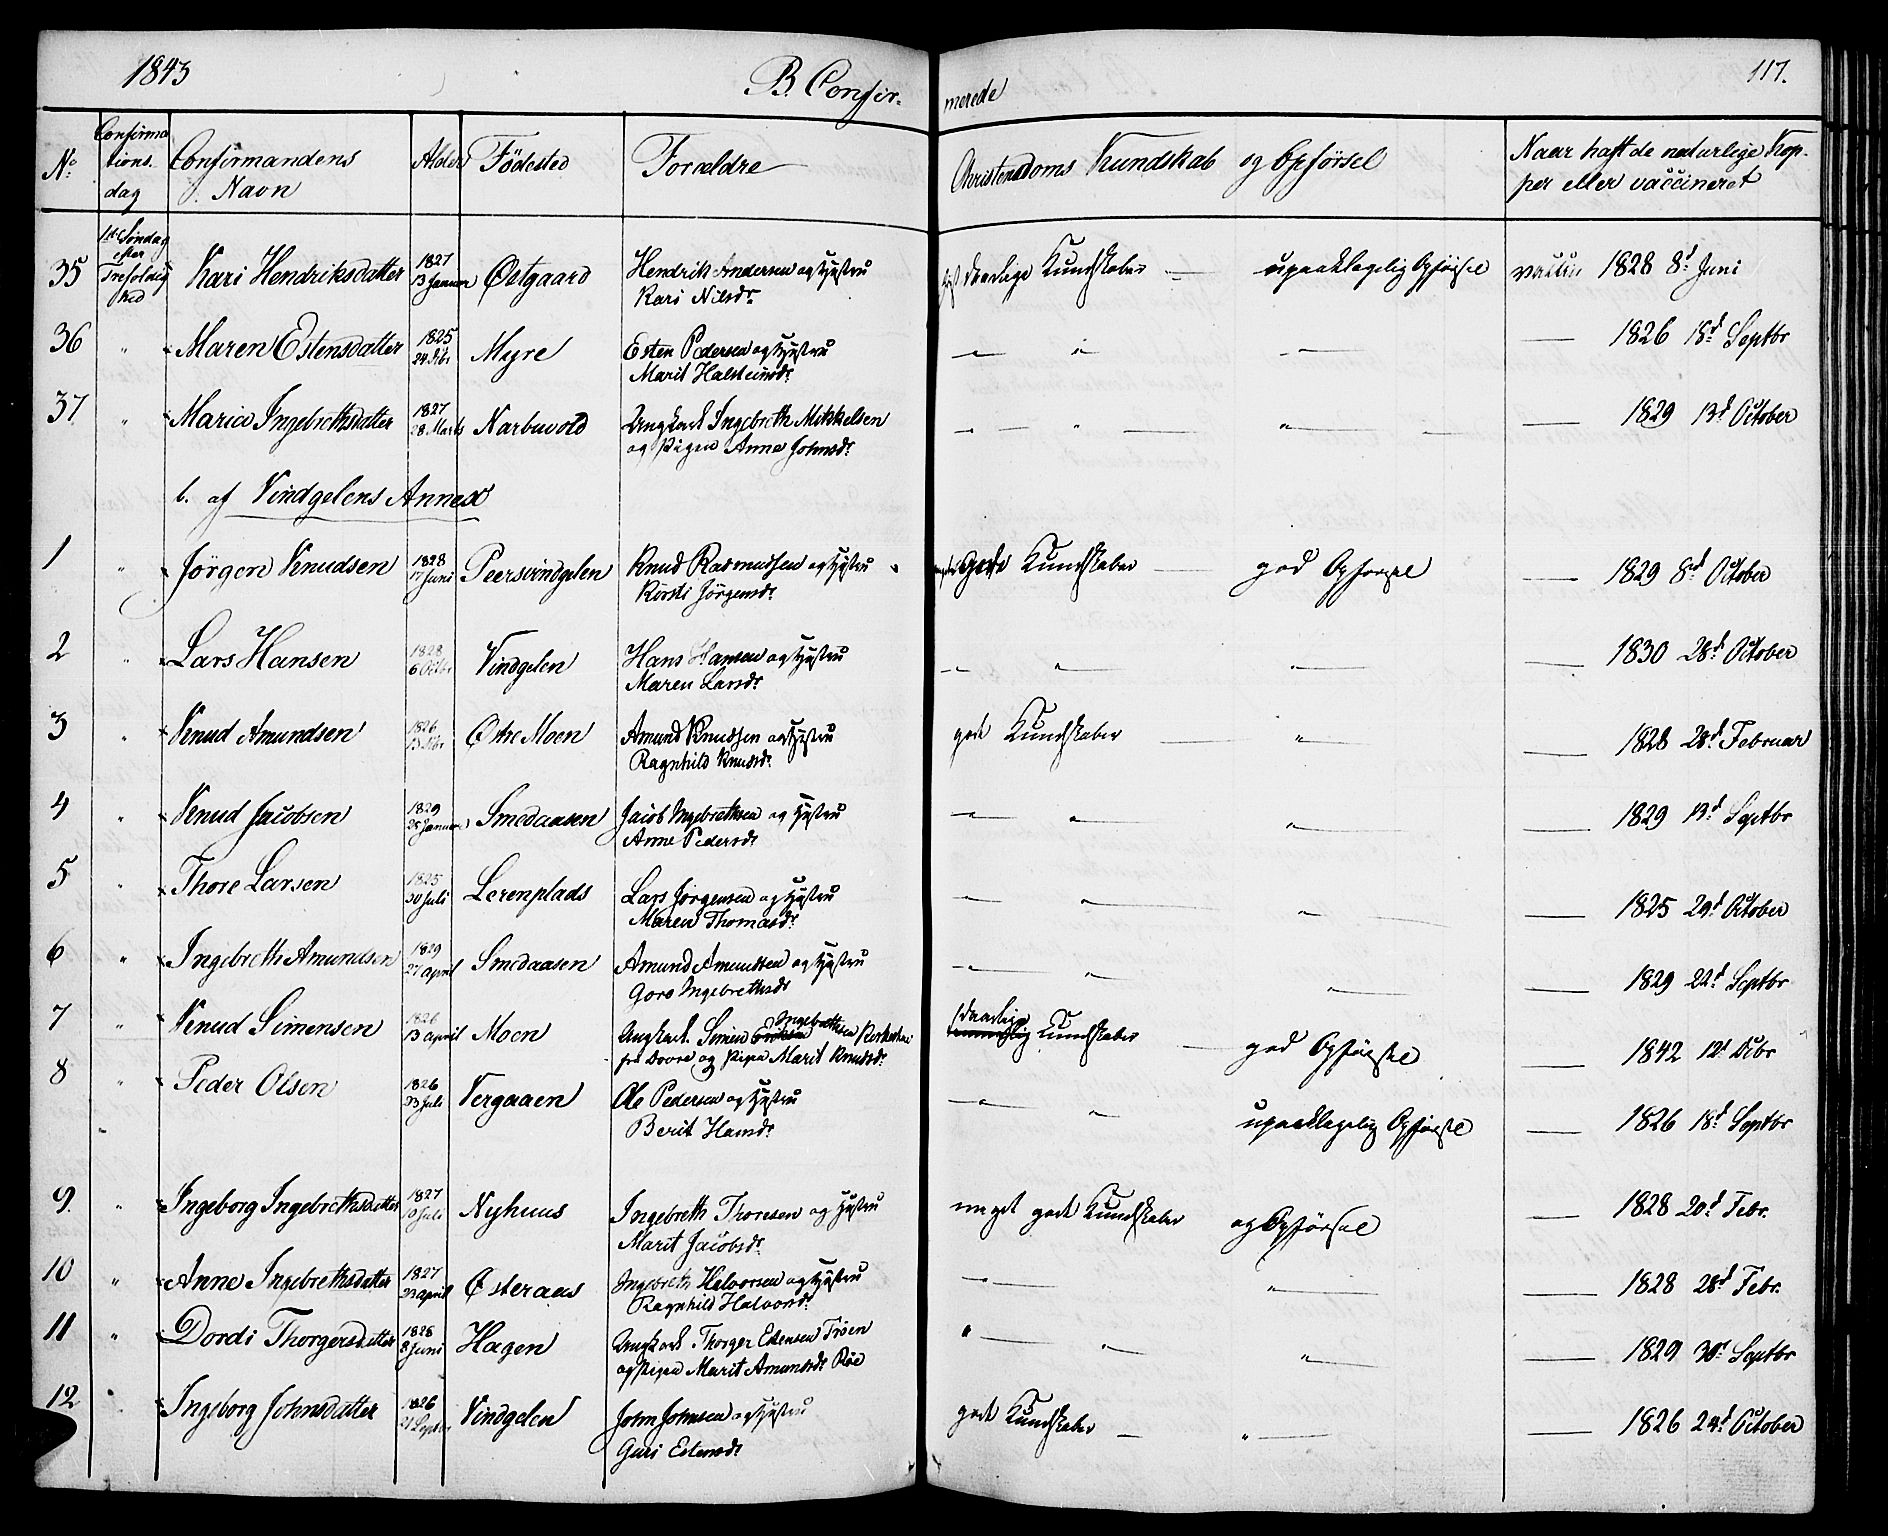 1843
B. Confir-
merede
117.
No
Confirma
tions-
dag
Confirmandens
Navn
Alder
Fødested
Forældre
Christendoms Kundskab og Opførsel
Naar haft de naturlige Kop-
per eller vaccineret
35 1ste Søndag efter Trefoldighed Kari Hendriksdatter 1827 13 Januar Østgaard Hendrik Andersen og Hustru
Kari Nilsdr
daarlige Kundskaber — upaaklagelig Opførsel vaccin 1828 8d Juni
36 " Maren Estensdatter 1825 Myre Esten Pedersen og Hustru
Marit Halsteinsdr
— " — — 1826 18d Septbr
37 " Maria Ingebrethsdatter 1827 28 Marts Narbuvold Ungkarl Ingebreth Mikkelsen
og Pigen Anne Johnsdr
— " — " — 1829 13d October
b. af Vindgelens Annex
1 " Jörgen Knudsen 1828 17 Juni Peersvindgelen Knud Rasmussen og Hustru
Kirsti Jörgensdr
gode Kundskaber — god Opførsel — 1829 8d October
2 " Lars Hansen 1828 6 Octbr Vindgelen Hans Hansen og Hustru
Maren Larsdr
— " — " — 1830 28d October
3 " Knud Amundsen 1826 Østre Moen Amund Knudsen og Hustru
Ragnhild Knudsdr
godt Kundskaber — " — 1828 28d Februar
4 " Knud Jacobsen 1829 25 Januar Smedaasen Jacob Ingebrethsen og Hustru
Anne Pedersdr
— " — " — 1829 13d Septbr
5 " Thore Larsen 1825 30 Juli Lerenplads Lars Jörgensen og Hustru
Maren Thomasdr
— " — " — 1825 29d October
6 " Ingebreth Amundsen 1829 27 April Smedaasen Amund Amundsen og Hustru
Goro Ingebrethsdr
— " — " — 1829 22d Septbr
7 " Knud Simensen 1826 13 April Moen Ungkarl Simen Ingebrethsen
fra Dovre og Pigen Marit Knudsdr
daarlige Kundskaber — god Opførsel — 1842 12t Dcbr
8 " Peder Olsen 1826 23 Juli Vergaaen Ole Pedersen og Hustru
Berit Hansdr
— " — upaaklagelig Opførsel — 1826 18d Septbr
9 " Ingeborg Ingebrethsdatter 1827 10 Juli Nyhuus Ingebreth Thoresen og Hustru
Marit Jacobsdr
meget godt Kundskaber og Opførsel — 1828 20d Febr.
10 " Anne Ingebrethsdatter 1827 23 April Østeraas Ingebreth Halvorsen og Hustru
Ragnhild Halvorsdr
— " — " — 1828 28d Febr.
11 " Dordi Thorgersdatter 1828 8 Juni Hagen Ungkarl Thorger Estensen Trøen
og Pigen Marit Amundsdr Røe
" — " — " — 1829 30t Septbr
12 " Ingeborg Johnsdatter 1826 21 Septbr Vindgelen John Johnsen og Hustru
Guri Estensdr
godt Kundskaber — " — 1826 24d October